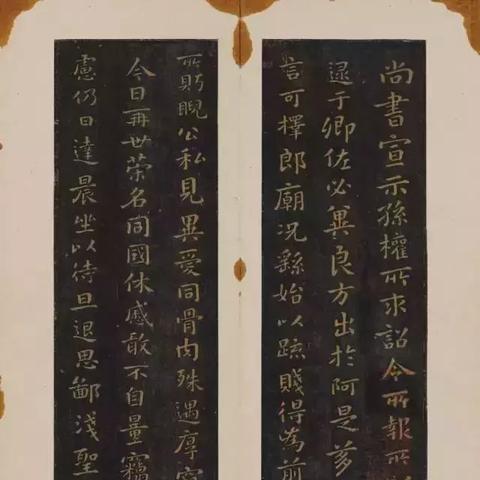 尚書宣示孫權所求詔令所報所
逮于卿佐必冀良方出於阿是芻
言可擇郎廟況繇始以疏賤得為前
所眄睨公私見異愛同骨肉殊遇厚
今日再世榮名同國休慼敢不自量竊
慮仍日達晨坐以待旦退思鄙淺聖